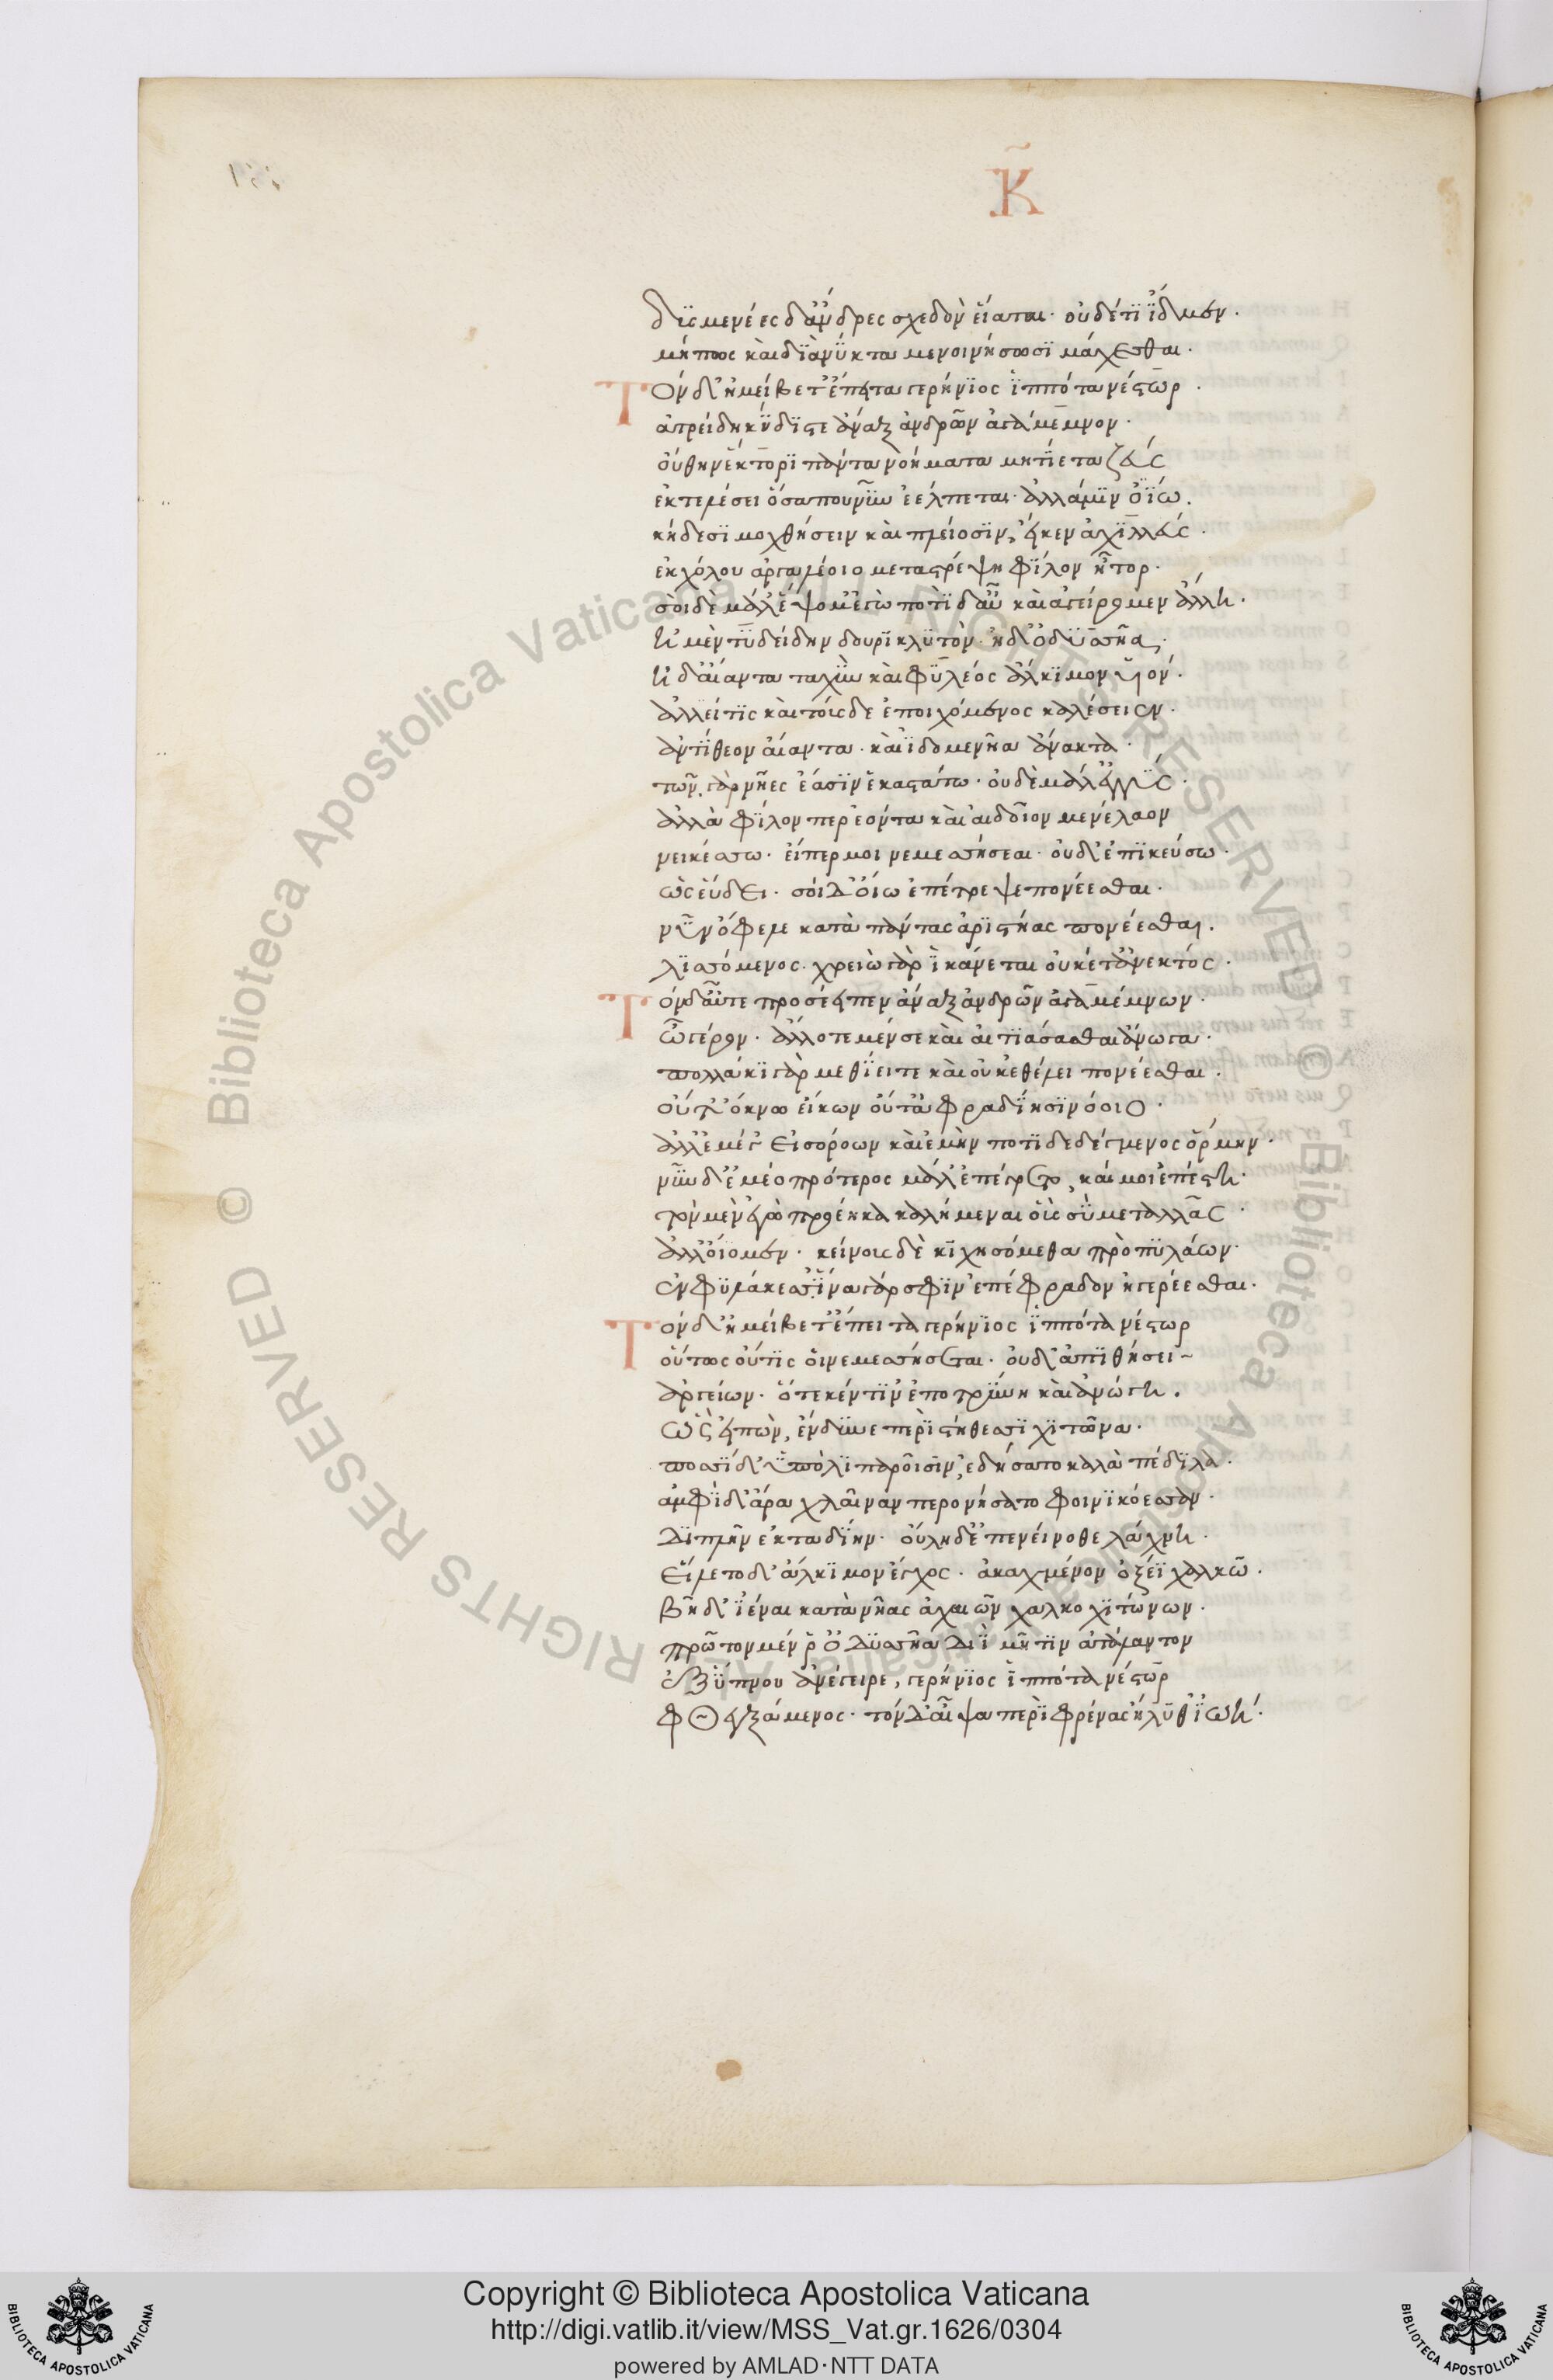 Κ̃
δϋσμενέες δ' ἄνδρες σχεδὸν εἵαται· οὐδέ τι ἴδμεν·
μήπως καὶ διὰ νύκτα μενοινήσωσι μάχεσθαι·
Τὸν δ' ἠμείβετ' ἔπειτα γερήνιος ἱππότα νέστωρ·
ἀτρείδη κύδιστε ἄναξ ἀνδρῶν ἀγάμεμνον·
οὔθην ἕκτορι πάντα νοήματα μητίετα ζεύς
ἐκτελέσει ὅσα που νῦν ἐέλπεται· ἀλλά μιν ὀΐω.
κήδεσι μοχθήσειν καὶ πλείοσιν, εἴ κεν ἀχιλλεύς·
ἐκ χόλου ἀργαλέοιο μεταστρέψη φίλον ἦτορ·
σοὶ δὲ μάλ' ἕψομ' ἐγὼ ποτὶ δ' αὖ καὶ ἐγείρομεν ἄλλους·
ἠ μὲν τυδείδην δουρικλυτὸν· ἠδ' ὀδυσσῆα,
ἠδ' αἴαντα ταχὺν καὶ φυλέος ἄλκιμον υἱόν·
ἀλλ' εἴ τις καὶ τούσδε ἐποιχόμενος καλέσειεν·
ἀντίθεον αἴαντα· καὶ ἰδομενῆα ἄνακτα·
τῶν γὰρ νῆες ἔασιν ἑκαστάτω· οὐδὲ μάλ' ἐγγύς·
ἀλλὰ φίλον περ ἐόντα καὶ αἰδοῖον μενέλαον
νεικέσω· εἴπερ μοι νεμεσήσεαι· οὐδ' ἐπικεύσω·
ὡς εὕδει· σοὶ δ' οἴω ἐπέτρεψε πονέεσθαι·
νῦν ὄφελε κατὰ πάντας ἀριστῆας πονέεσθαι.
λισσόμενος· χρειὼ γὰρ ἱκάνεται οὐκέτ' ἀνεκτός·
Τὸν δ' αὖτε προσέειπεν ἄναξ ἀνδρῶν ἀγαμέμνων·
ὦ γέρον· ἄλλοτε μέν σε καὶ αἰτιάσασθαι ἄνωγα·
πολλάκι γὰρ μεθίει τε καὶ οὐκ ἐθέλει πονέεσθαι·
οὔτ' ὄκνω εἴκων οὔτ' ἀφραδίησι νόοιο·
ἀλλ' ἐμέ τ' εἰσορόων καὶ ἐμὴν ποτιδεδέγμενος ὁρμήν·
νῦν δ' ἐμέο πρότερος μάλ' ἐπέγρετο, καί μοι ἐπέστη·
τὸν μὲν ἐγὼ προέηκα καλήμεναι οὓς σὺ μεταλλᾶς·
ἀλλ' ἴομεν· κείνους δὲ κιχησόμεθα πρὸ πυλάων·
ἐν φυλάκεσσ' ἵνα γάρ σφιν ἐπέφραδον ἠγερέεσθαι·
Τὸν δ' ἠμείβετ' ἔπειτα γερήνιος ἱππότα νέστωρ
οὕτως οὔτις οἱ νεμεσήσεται· οὐδ' ἀπιθήσει
ἀργείων· ὅτε κέν τιν' ἐποτρύνη καὶ ἀνώγη.
ὣς εἰπὼν, ἔνδυνε περὶ στήθεσσι χιτῶνα·
ποσσὶ δ' ὑπὸ λιπαροῖσιν, ἐδήσατο καλὰ πέδιλα·
ἀμφὶ δ' ἄρα χλαῖναν περονήσατο φοινικόεσσαν·
διπλῆν ἐκταδίην· οὔλη δ' ἐπενήνοθε λάχνη·
εἵλετο δ' ἄλκιμον ἔγχος· ἀκαχμένον ὀξέϊ χαλκῶ·
βῆ δ' ἰέναι κατὰ νῆας ἀχαιῶν χαλκοχιτώνων·
πρῶτον μέν ῥ' ὀδυσσῆα διῒ μῆτιν ἀτάλαντον
ἐξ ὕπνου ἀνέγειρε, γερήνιος ἱππότα νέστωρ
φθεγξάμενος· τὸν δ' αἶψα περὶ φρένας ἤλυθ' ἰωή·
Copyright © Biblioteca Apostolica Vaticana
http://digi.vatlib.it/view/MSS_Vat.gr.1626/0304
powered by AMLAD·NTT DATA